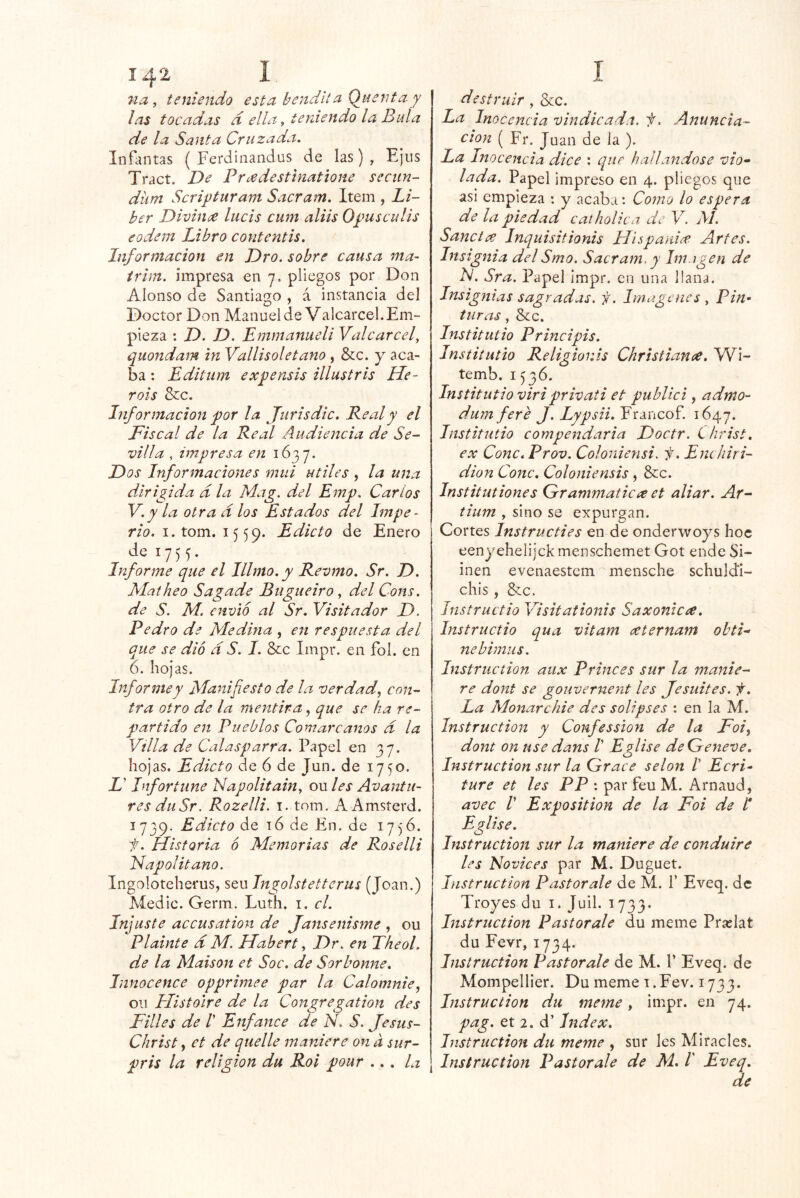 142 I
na, teniendo esta bendita Quenta y
las tocadas á ella, teniendo la Bula
de la Santa Cruzada.
Infantas ( Ferdinandus de las ) , Ejus
Tract. De Prædestinatione secun-
dùm Scripturam Sacram. Item , Li-
ber Divinæ lucis cum aliis Opusculis
eodem Libro contentis.
Informacion en Dro. sobre causa ma-
trim. impresa en 7. pliegos por Don
Alonso de Santiago , á instancia del
Doctor Don Manuel de Valcarcel. Em-
pieza : D. D. Emmanueli Valcarcel,
quondam in Vallisoletano , &c. y aca-
ba : Editum expensis illustris He-
rois &c.
Informacion por la Jurisdic. Real y el
Fiscal de la Real Audiencia de Se-
villa , impresa en 1637.
Dos Informaciones mui utiles , la una
dirigida á la Mag. del Emp. Carlos
V. y la otra á los Estados del Impe-
rio. 1. tom. 1559. Edicto de Enero
de 1755.
Informe que el Illmo. y Revmo. Sr. D.
Matheo Sagade Bugueiro , del Cons.
de S. M. envió al Sr. Visitador D.
Pedro de Medina , en respuesta del
que se dió á S. I. &c Impr. en fol. en
6. hojas.
Informe y Manifiesto de la verdad, con-
tra otro de la mentira, que se ha re-
partido en Pueblos Comarcanos á la
Villa de Calasparra. Papel en 37.
hojas. Edicto de 6 de Jun. de 1750.
L' Infortune Napolitain, ou les Avantu-
res du Sr. Rozelli. 1. tom. A Amsterd.
1739. Edicto de 16 de En. de 1756.
ꝟ. Historia ó Memorias de Roselli
Napolitano.
Ingoloteherus, seu Ingolstetterus (Joan.)
Medic. Germ. Luth. 1. cl.
Injuste accusation de Jansenisme , ou
Plainte á M. Habert , Dr. en Theol.
de la Maison et Soc. de Sorbonne.
Innocence opprimee par la Calomnie,
ou Histoire de la Congregation des
Filles de l' Enfance de N. S. Jesus-
Christ, et de quelle maniere on à sur-
pris la religion du Roi pour ... la
I
destruir , &c.
La Inocencia vindicada. ꝟ. Anuncia-
cion ( Fr. Juan de la ).
La Inocencia dice : que hallandose vio-
lada. Papel impreso en 4. pliegos que
asi empieza : y acaba : Como lo espera
de la piedad catholica de V. M.
Sanctæ Inquisitionis Hispaniæ Artes.
Insignia del Smo. Sacram. y Imagen de
N. Sra. Papel impr. en una llana.
Insignias sagradas. ꝟ. Imagenes , Pin-
turas , &c.
Institutio Principis.
Institutio Religionis Christianæ. Wi-
temb. 1536.
Institutio viri privati et publici , admo-
dum ferè J. Lypsii. Francof. 1647.
Institutio compendaria Doctr. Christ.
ex Conc. Prov. Coloniensi. ꝟ. Enchiri-
dion Conc. Coloniensis , &c.
Institutiones Grammaticæ et aliar. Ar-
tium , sino se expurgan.
Cortes Instructies en de onderwoys hoe
eenyehelijck menschemet Got ende Si-
inen evenaestem mensche schuldi-
chis , &c.
Instructio Visitationis Saxonicæ.
Instructio qua vitam æternam obti-
nebimus.
Instruction aux Princes sur la manie-
re dont se gouvernent les Jesuites. ꝟ.
La Monarchie des solipses : en la M.
Instruction y Confession de la Foi,
dont on use dans l' Eglise de Geneve.
Instruction sur la Grace selon l' Ecri-
ture et les PP : par feu M. Arnaud,
avec l' Exposition de la Foi de l'
Eglise.
Instruction sur la maniere de conduire
les Novices par M. Duguet.
Instruction Pastorale de M. l' Eveq. de
Troyes du 1. Juil. 1733.
Instruction Pastorale du meme Prælat
du Fevr, 1734.
Instruction Pastorale de M. l' Eveq. de
Mompellier. Du meme 1. Fev. 1733.
Instruction du meme , impr. en 74.
pag. et 2. d' Index.
Instruction du meme , sur les Miracles.
Instruction Pastorale de M. l' Eveq.
de